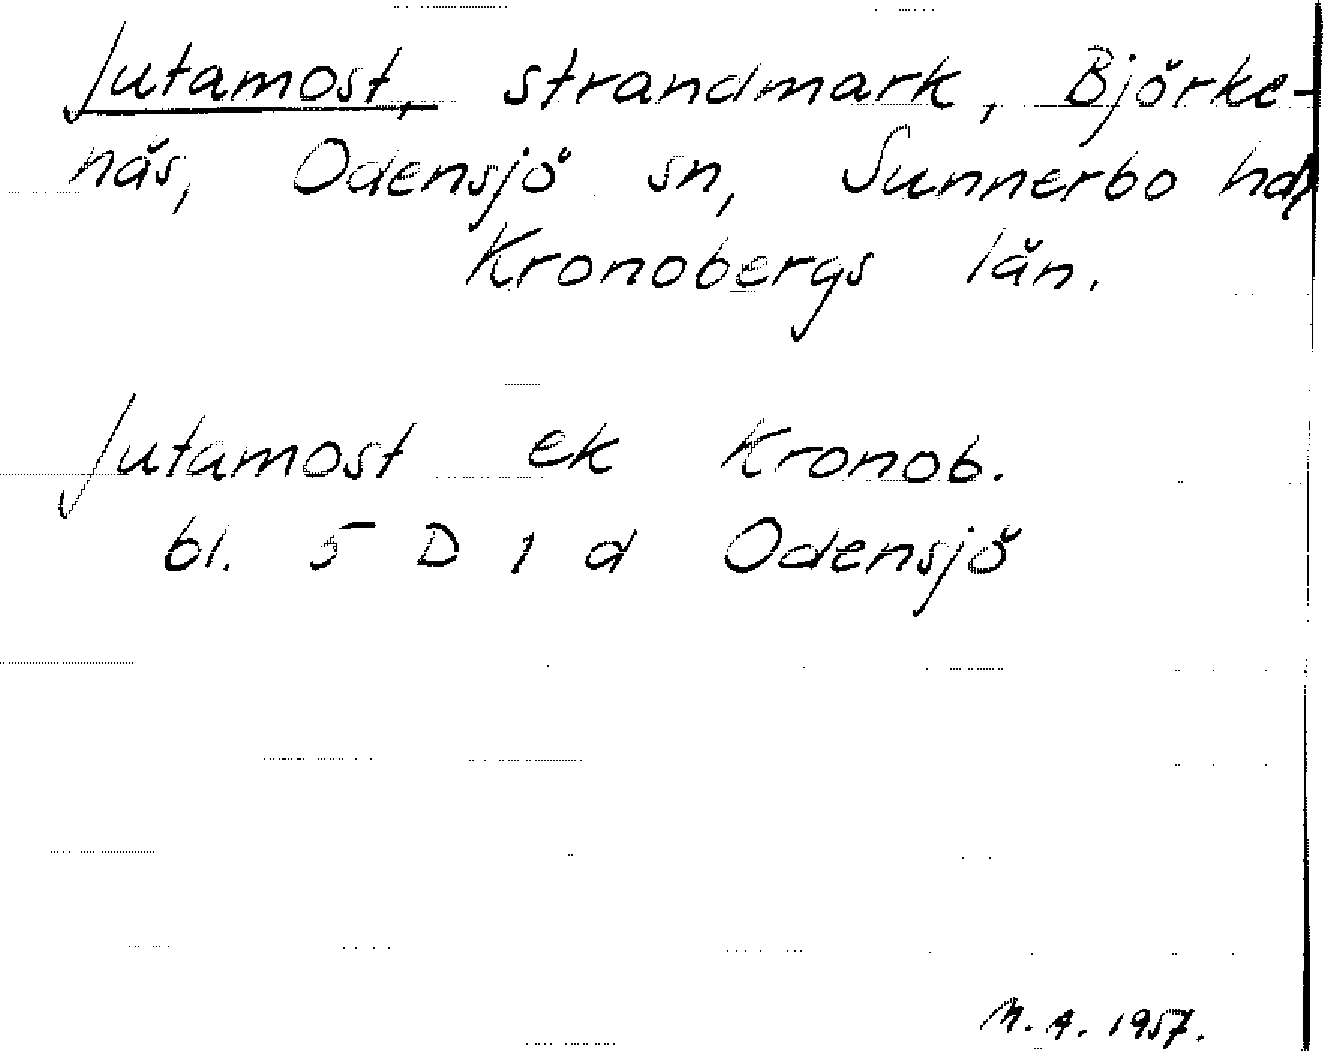 Jutamost, strandmark, Björke-
näs, Odensjö sn, Sunnerbo hd,
Kronobergs län.
Jutamost ek Kronob.
bl. 5 D 1 d Odensjö
M. A. 1957.